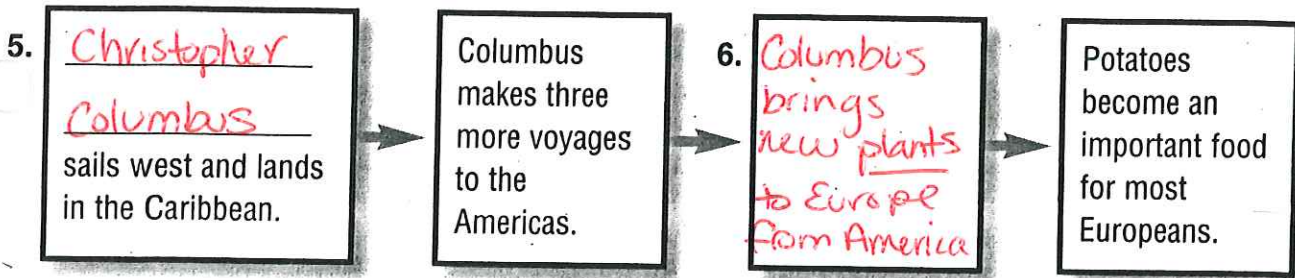 5.
Christopher
Columbus
sails west and lands
in the Caribbean.
Columbus
makes three
more voyages
to the
Americas.
6.
Columbus
brings
new plants
to Europe
from America
Potatoes
become an
important food
for most
Europeans.